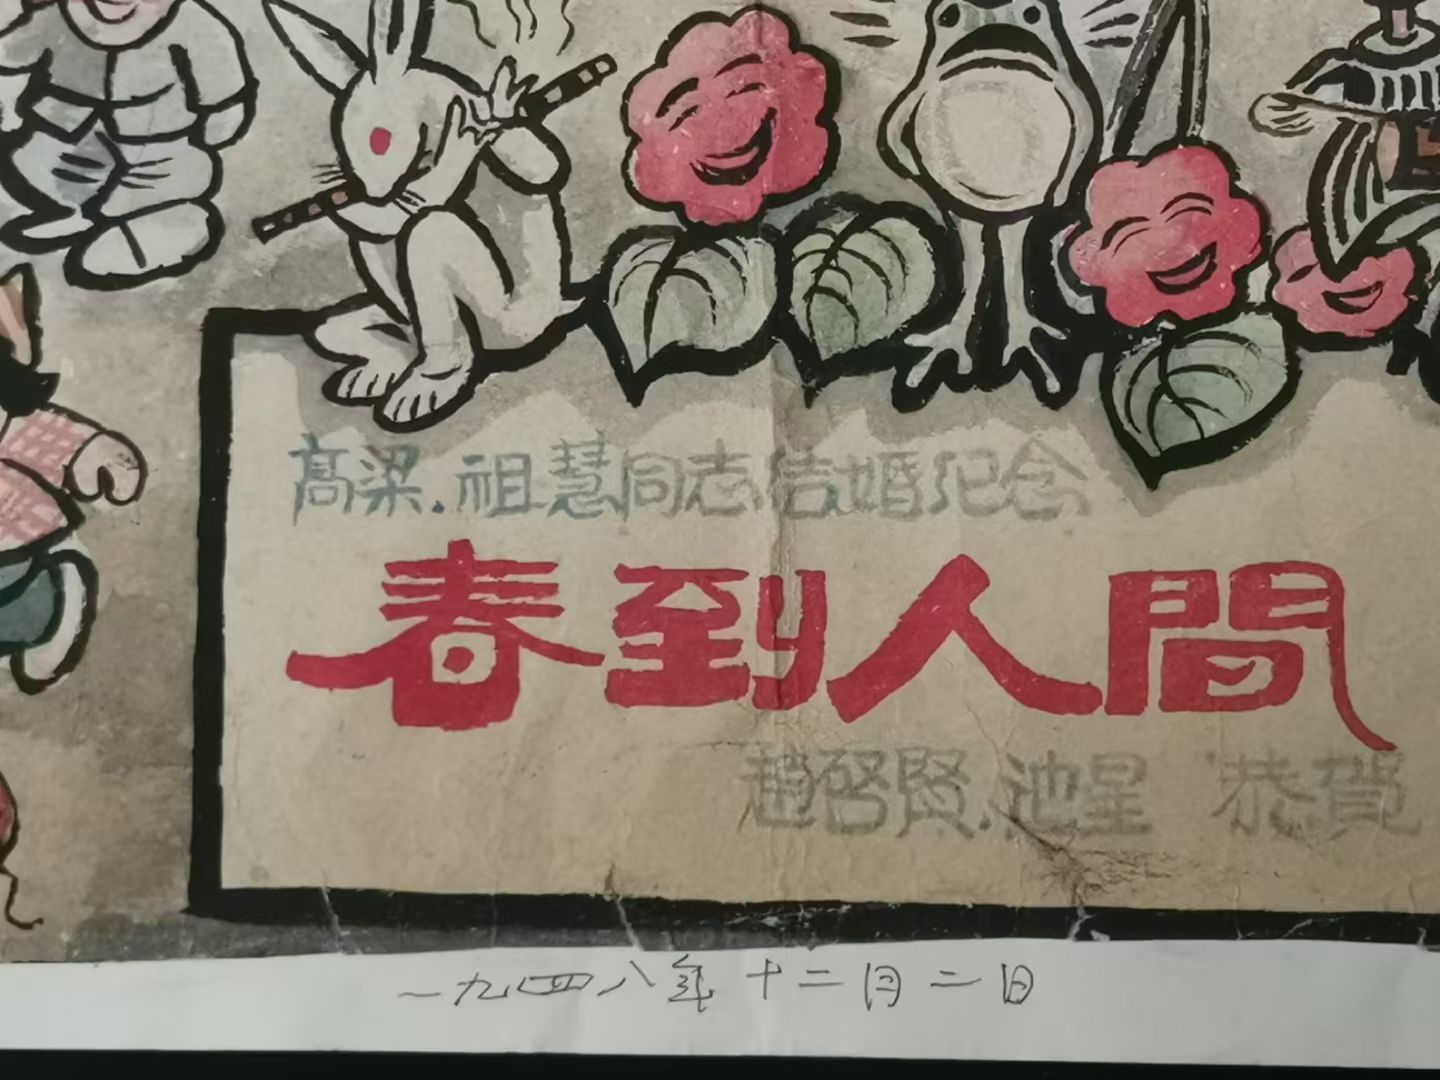 高梁.祖慧同志结婚纪念
春到人間
趙努賢.池星 恭賀
一九四八年十二月二日